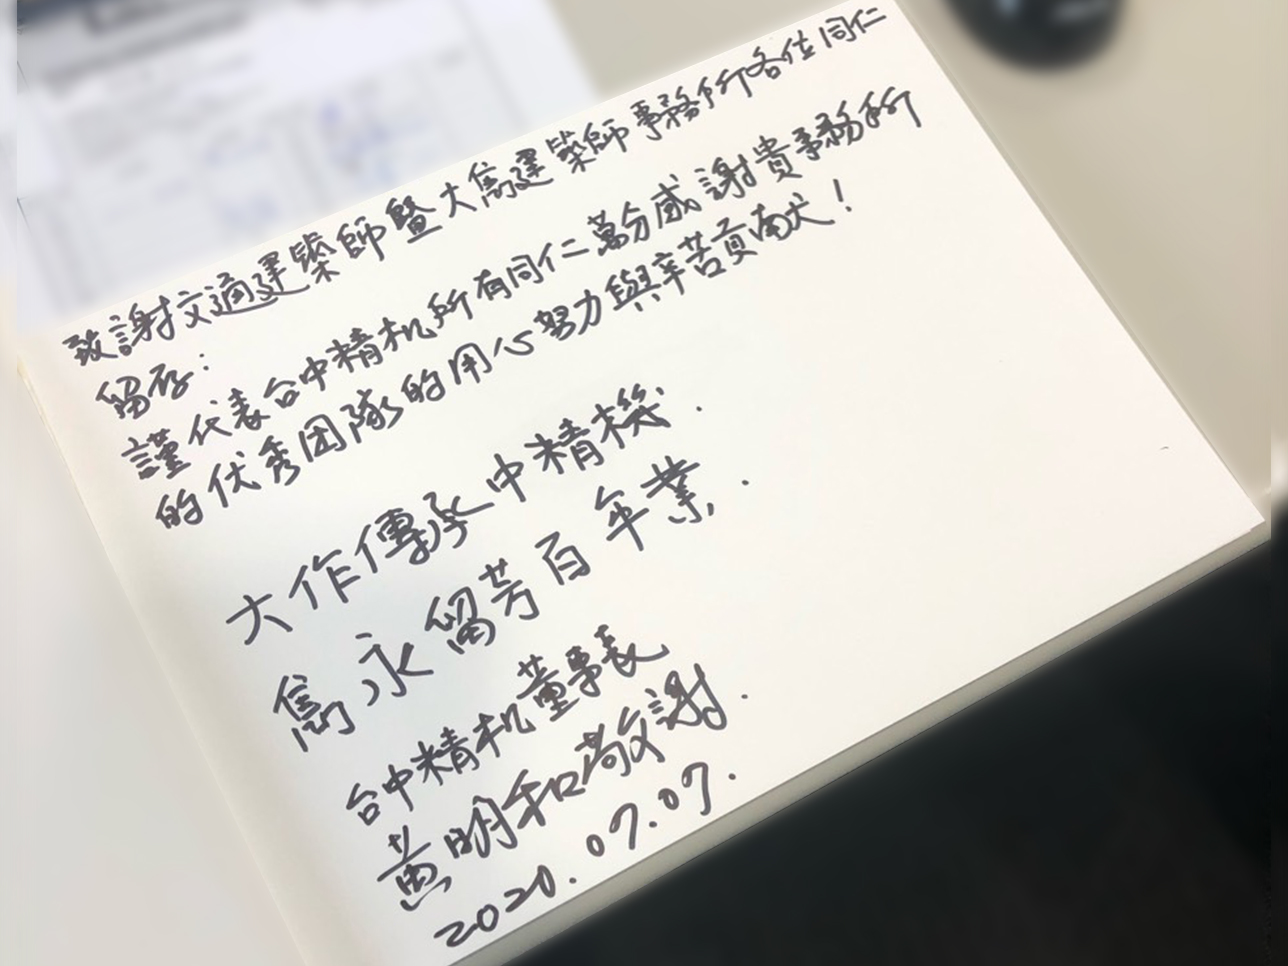 致謝交通建築師暨大雋建築師事務所各位同仁
留存：
謹代表台中精机所有同仁萬分感謝貴事務所
的优秀团隊的用心努力與辛苦貢献！
大作傳承中精機．
雋永留芳百年業．
台中精机董事長
黃明和敬謝．
2020.07.07.